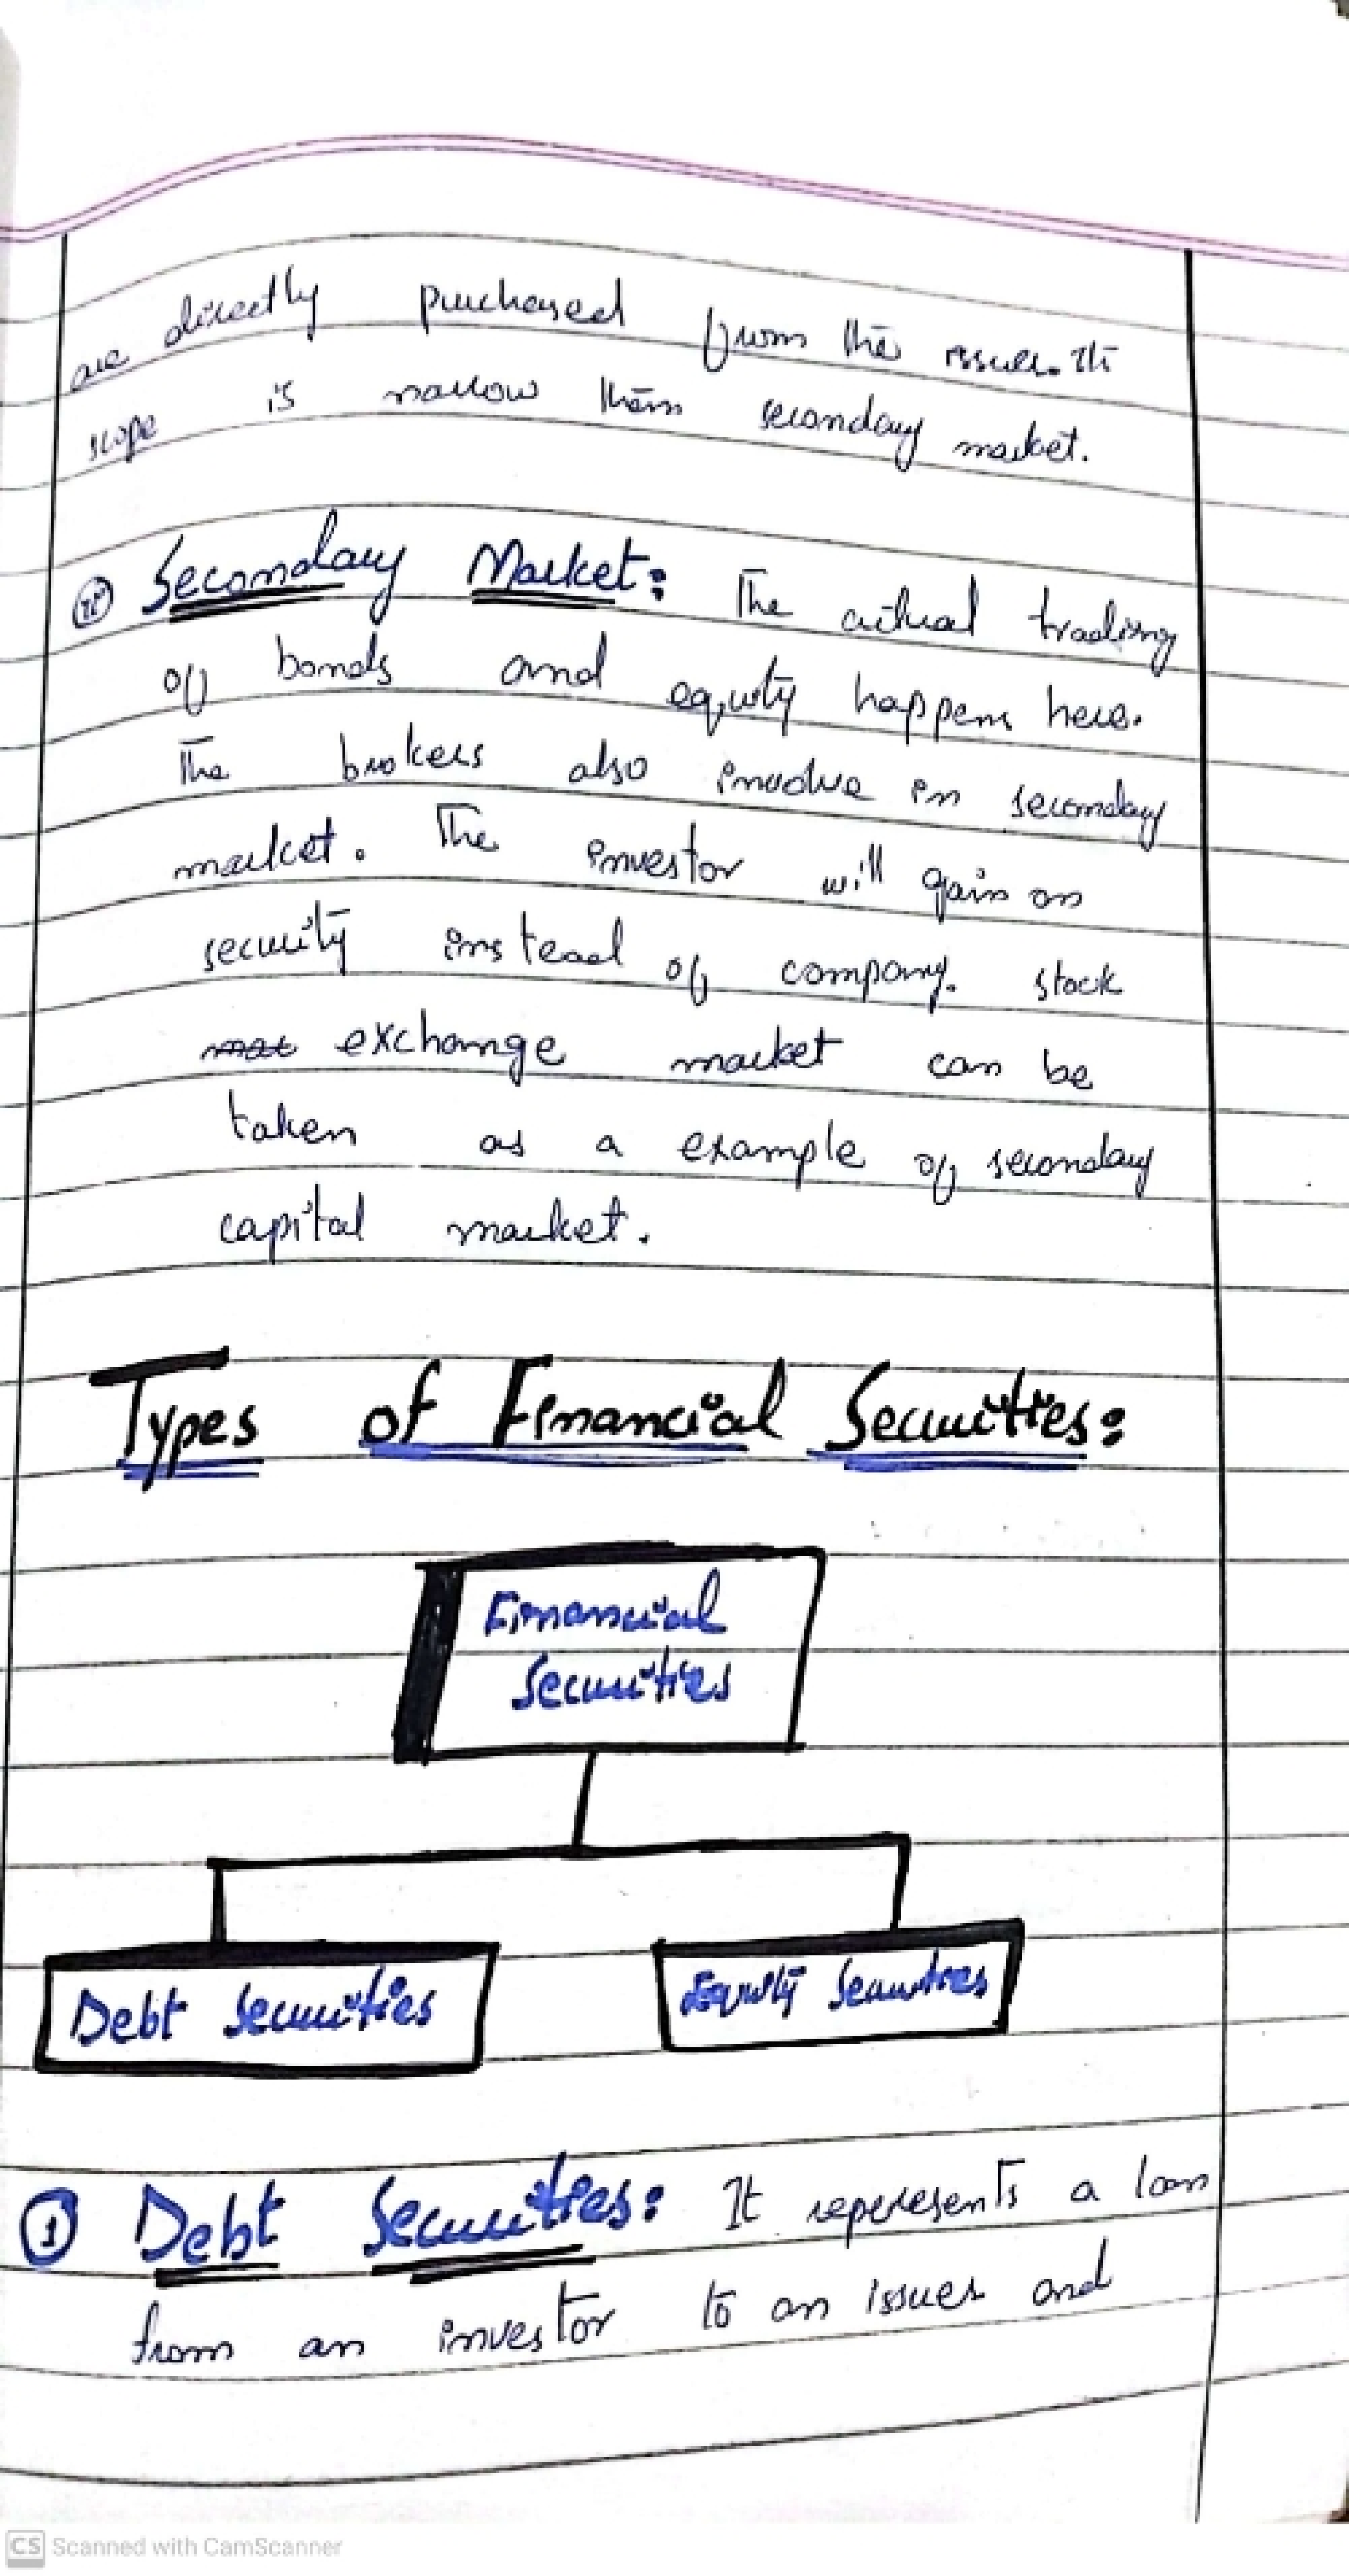 are directly purchased from the issuer. It's
scope is narrow than secondary market.
(ii) Secondary Market: The actual trading
of bonds and equity happens here.
The brokers also involve in secondary
market. The investor will gain on
security instead of company. stock
exchange market can be
taken as a example of secondary
capital market.
Types of Financial Securities:
Financial
Securities
Debt Securities Equity Securities
① Debt Securities: It represents a loan
from an investor to an issuer and
CS Scanned with CamScanner